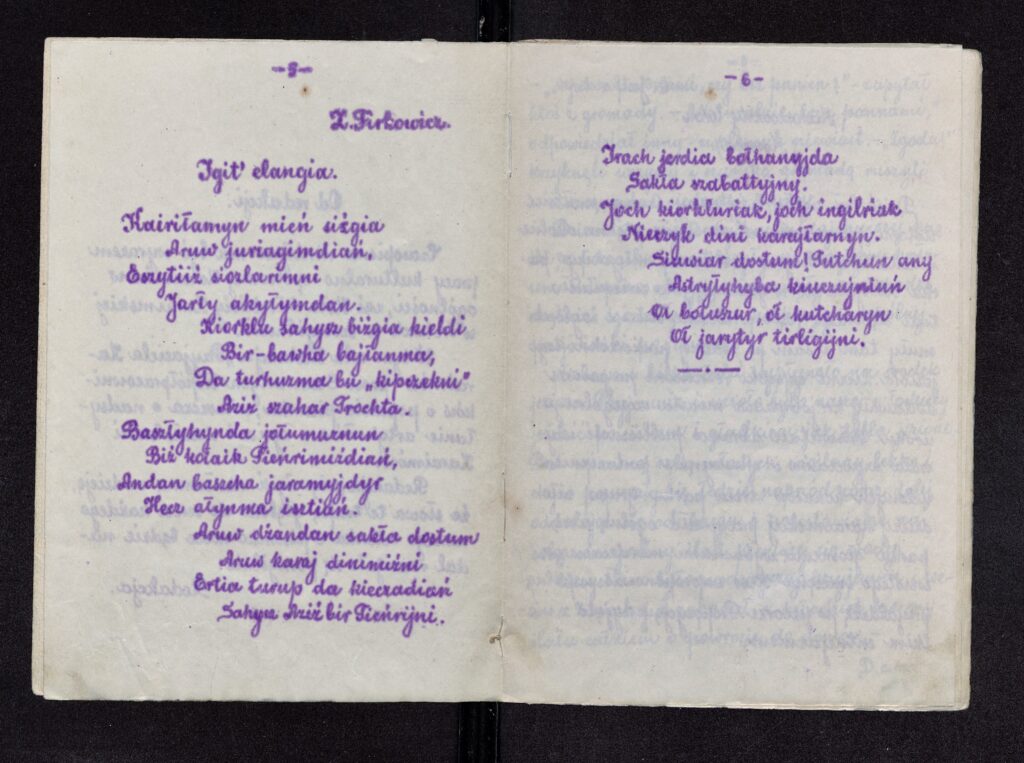 -5-
Z. Firkowicz.
Igit' elangia.
Kairiłamyn mień siźgia
Aruw juriagimdiań,
Eszytiiź siozlarimni
Jarły akyłymdan.
Kiorklu sahysz biźgia kieldi
Bir-bawha bajłanma,
Da turhuzma bu „kipczekni"
Aziź szahar Trochta.
Basztyhynda jołumuznun
Biź kołaik Tieńrimiźdiań,
Andan baszcha jaramyjdyr
Hecz ałynma isztiań.
Aruw dżandan sakła dostum
Aruw karaj dinimiźni
Ertia turup da kieczadiań
Sahysz Aziź bir Tieńrijni.
-6-
Irach jerdia bołhanyjda
Sakła szabattyjny.
Joch kiorkluriak, joch ingilriak
Nieczyk dini karajłarnyn.
Siuwiar dostum! Tutchun any
Astrytyhyba kiuczujniuń
Oł bołuszur, oł kutcharyr
Oł jarytyr tirligijni.